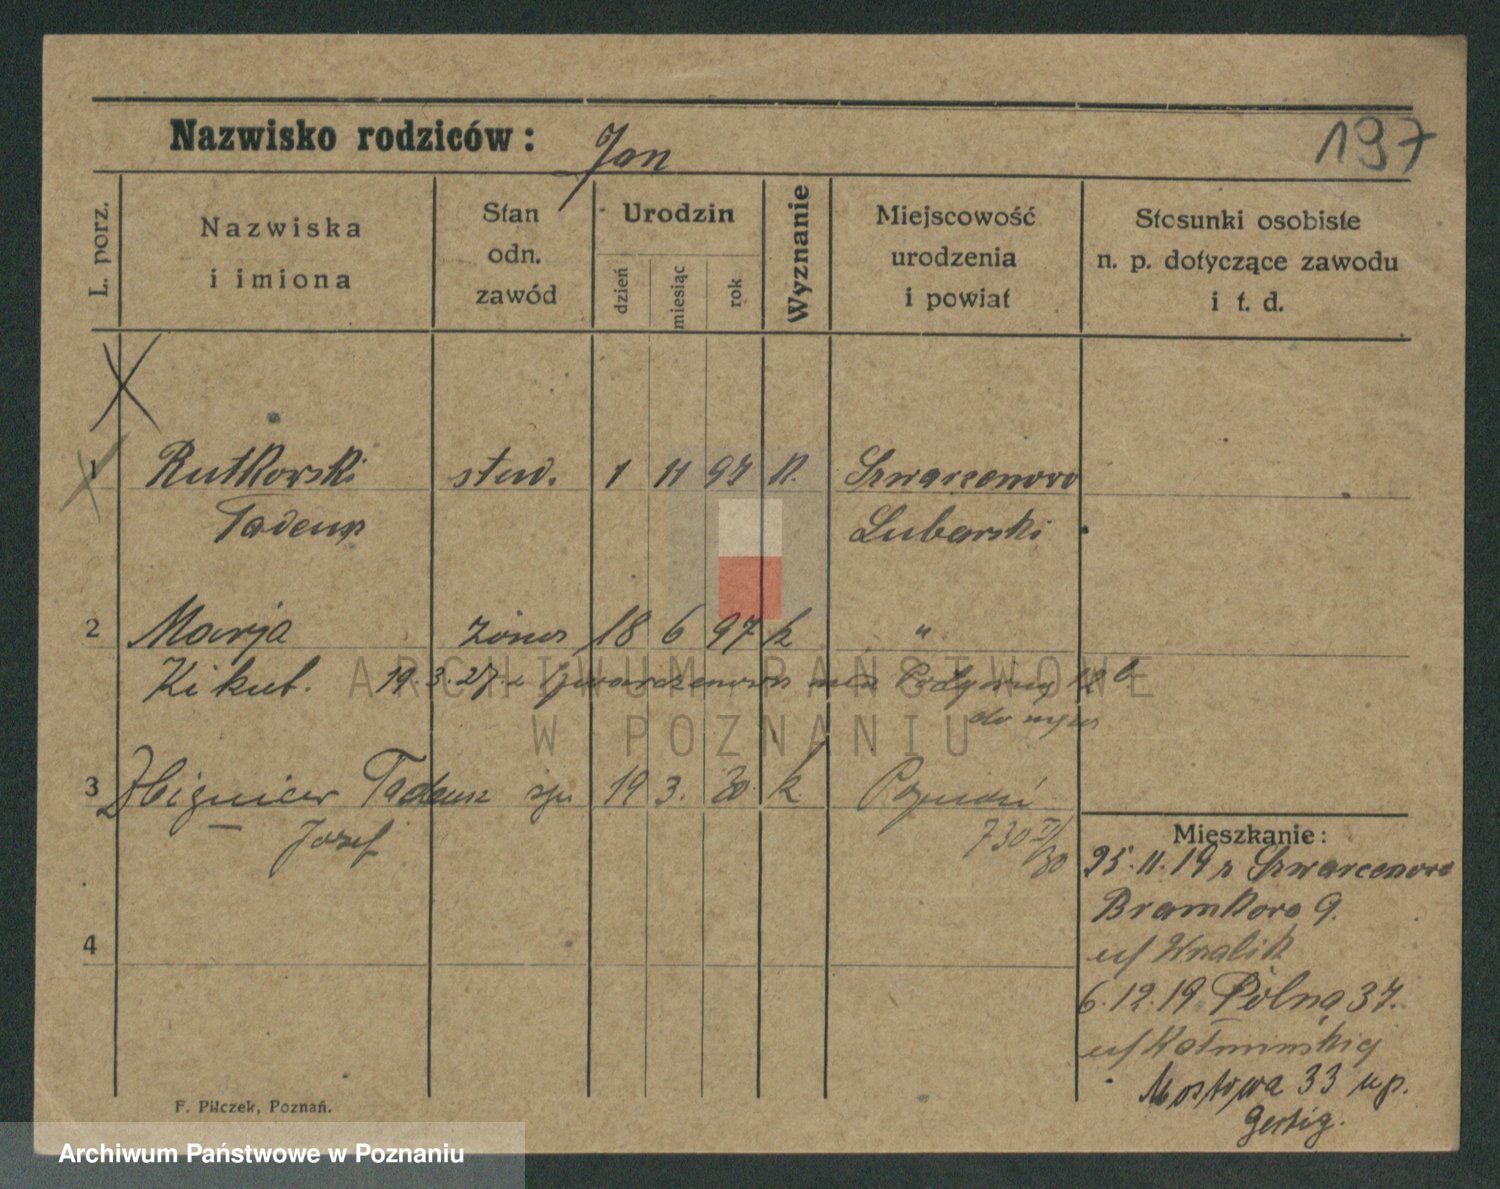 Nazwisko rodziców: Jan
197
L. porz.
Nazwiska
i imiona
Stan
odn.
zawód
Urodzin
dzień
miesiąc
rok
Wyznanie
Miejscowość
urodzenia
i powiat
Stosunki osobiste
n. p. dotyczące zawodu
i t. d.
1 Rutkowski stud. 1 11 97 K. Szwarcenowo
Tadeusz Lubawski
2 Marja żona 18 6 97 k "
Kikut. 19.3.27 z Szwarcenowa 12b
do męża
3 Zbigniew Tadeusz syn 19 3. 30. k. Poznań
Józef 730 II/30
4
Mieszkanie:
25.11.19 z Szwarcenowo
Bramkowa 9.
u/ Wzalik
6.12.19 Polna 37.
u/
Mostowa 33 u p.
Gertig.
F. Pilczek, Poznań.
ARCHIWUM PAŃSTWOWE
W POZNANIU
Archiwum Państwowe w Poznaniu